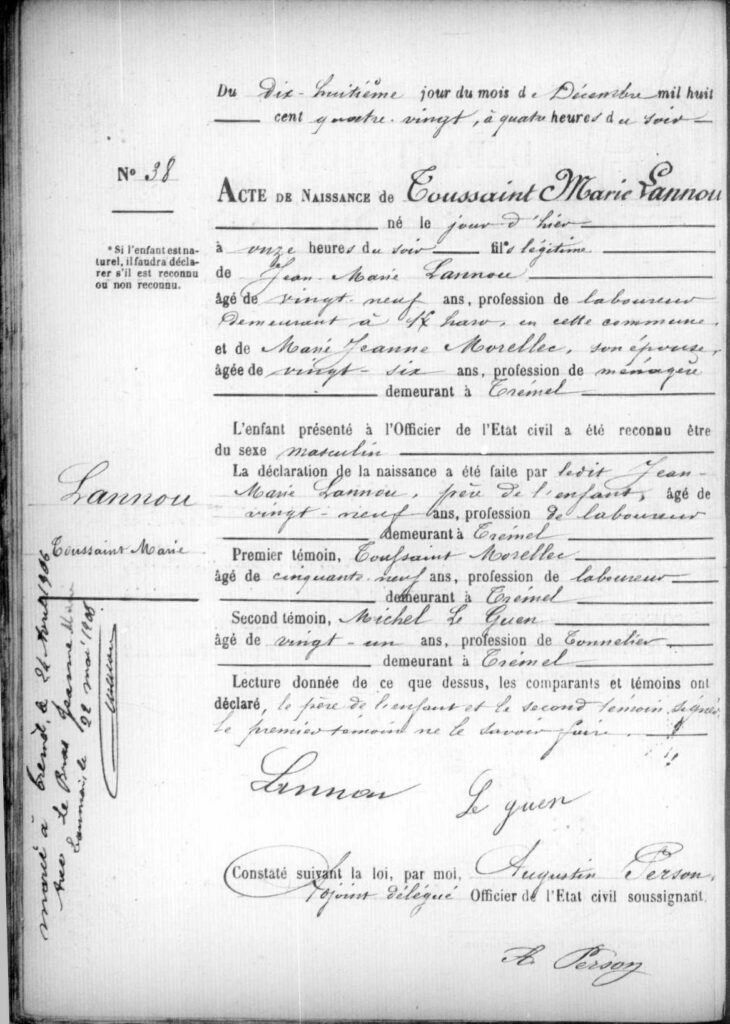 Du dix-huitième jour du mois de Décembre mil huit
cent quatre-vingt, à quatre heures du soir
N° 38
ACTE DE NAISSANCE de Toussaint Marie Lannou
né le jour d'hier
* Si l'enfant est na-
turel, il faudra décla-
rer s'il est reconnu
ou non reconnu.
à onze heures du soir fils légitime
de Jean-Marie Lannou
âgé de vingt-neuf ans, profession de laboureur
demeurant à en cette commune,
et de Marie Jeanne Morellec, son épouse,
âgée de vingt-six ans, profession de ménagère
demeurant à Trémel
L'enfant présenté à l'Officier de l'Etat civil a été reconnu être
du sexe masculin
La déclaration de la naissance a été faite par ledit Jean-
Marie Lannou, père de l'enfant, âgé de
vingt-neuf ans, profession de laboureur
demeurant à Trémel
Lannou
Toussaint Marie
Premier témoin, Toussaint Morellec
âgé de cinquante-neuf ans, profession de laboureur
demeurant à Trémel
Second témoin, Michel Le Guen
âgé de vingt-un ans, profession de Tonnelier
demeurant à Trémel
Lecture donnée de ce que dessus, les comparants et témoins ont
déclaré, le père de l'enfant et le second témoin signer
le premier témoin ne le savoir faire.
marié à Trémel, le 24 1906
Avec Le Bras Jeanne
Lannion, le 22 mai
Lannou
Le guen
Constaté suivant la loi, par moi, Augustin Person,
Adjoint délégué Officier de l'Etat civil soussignant.
A. Person